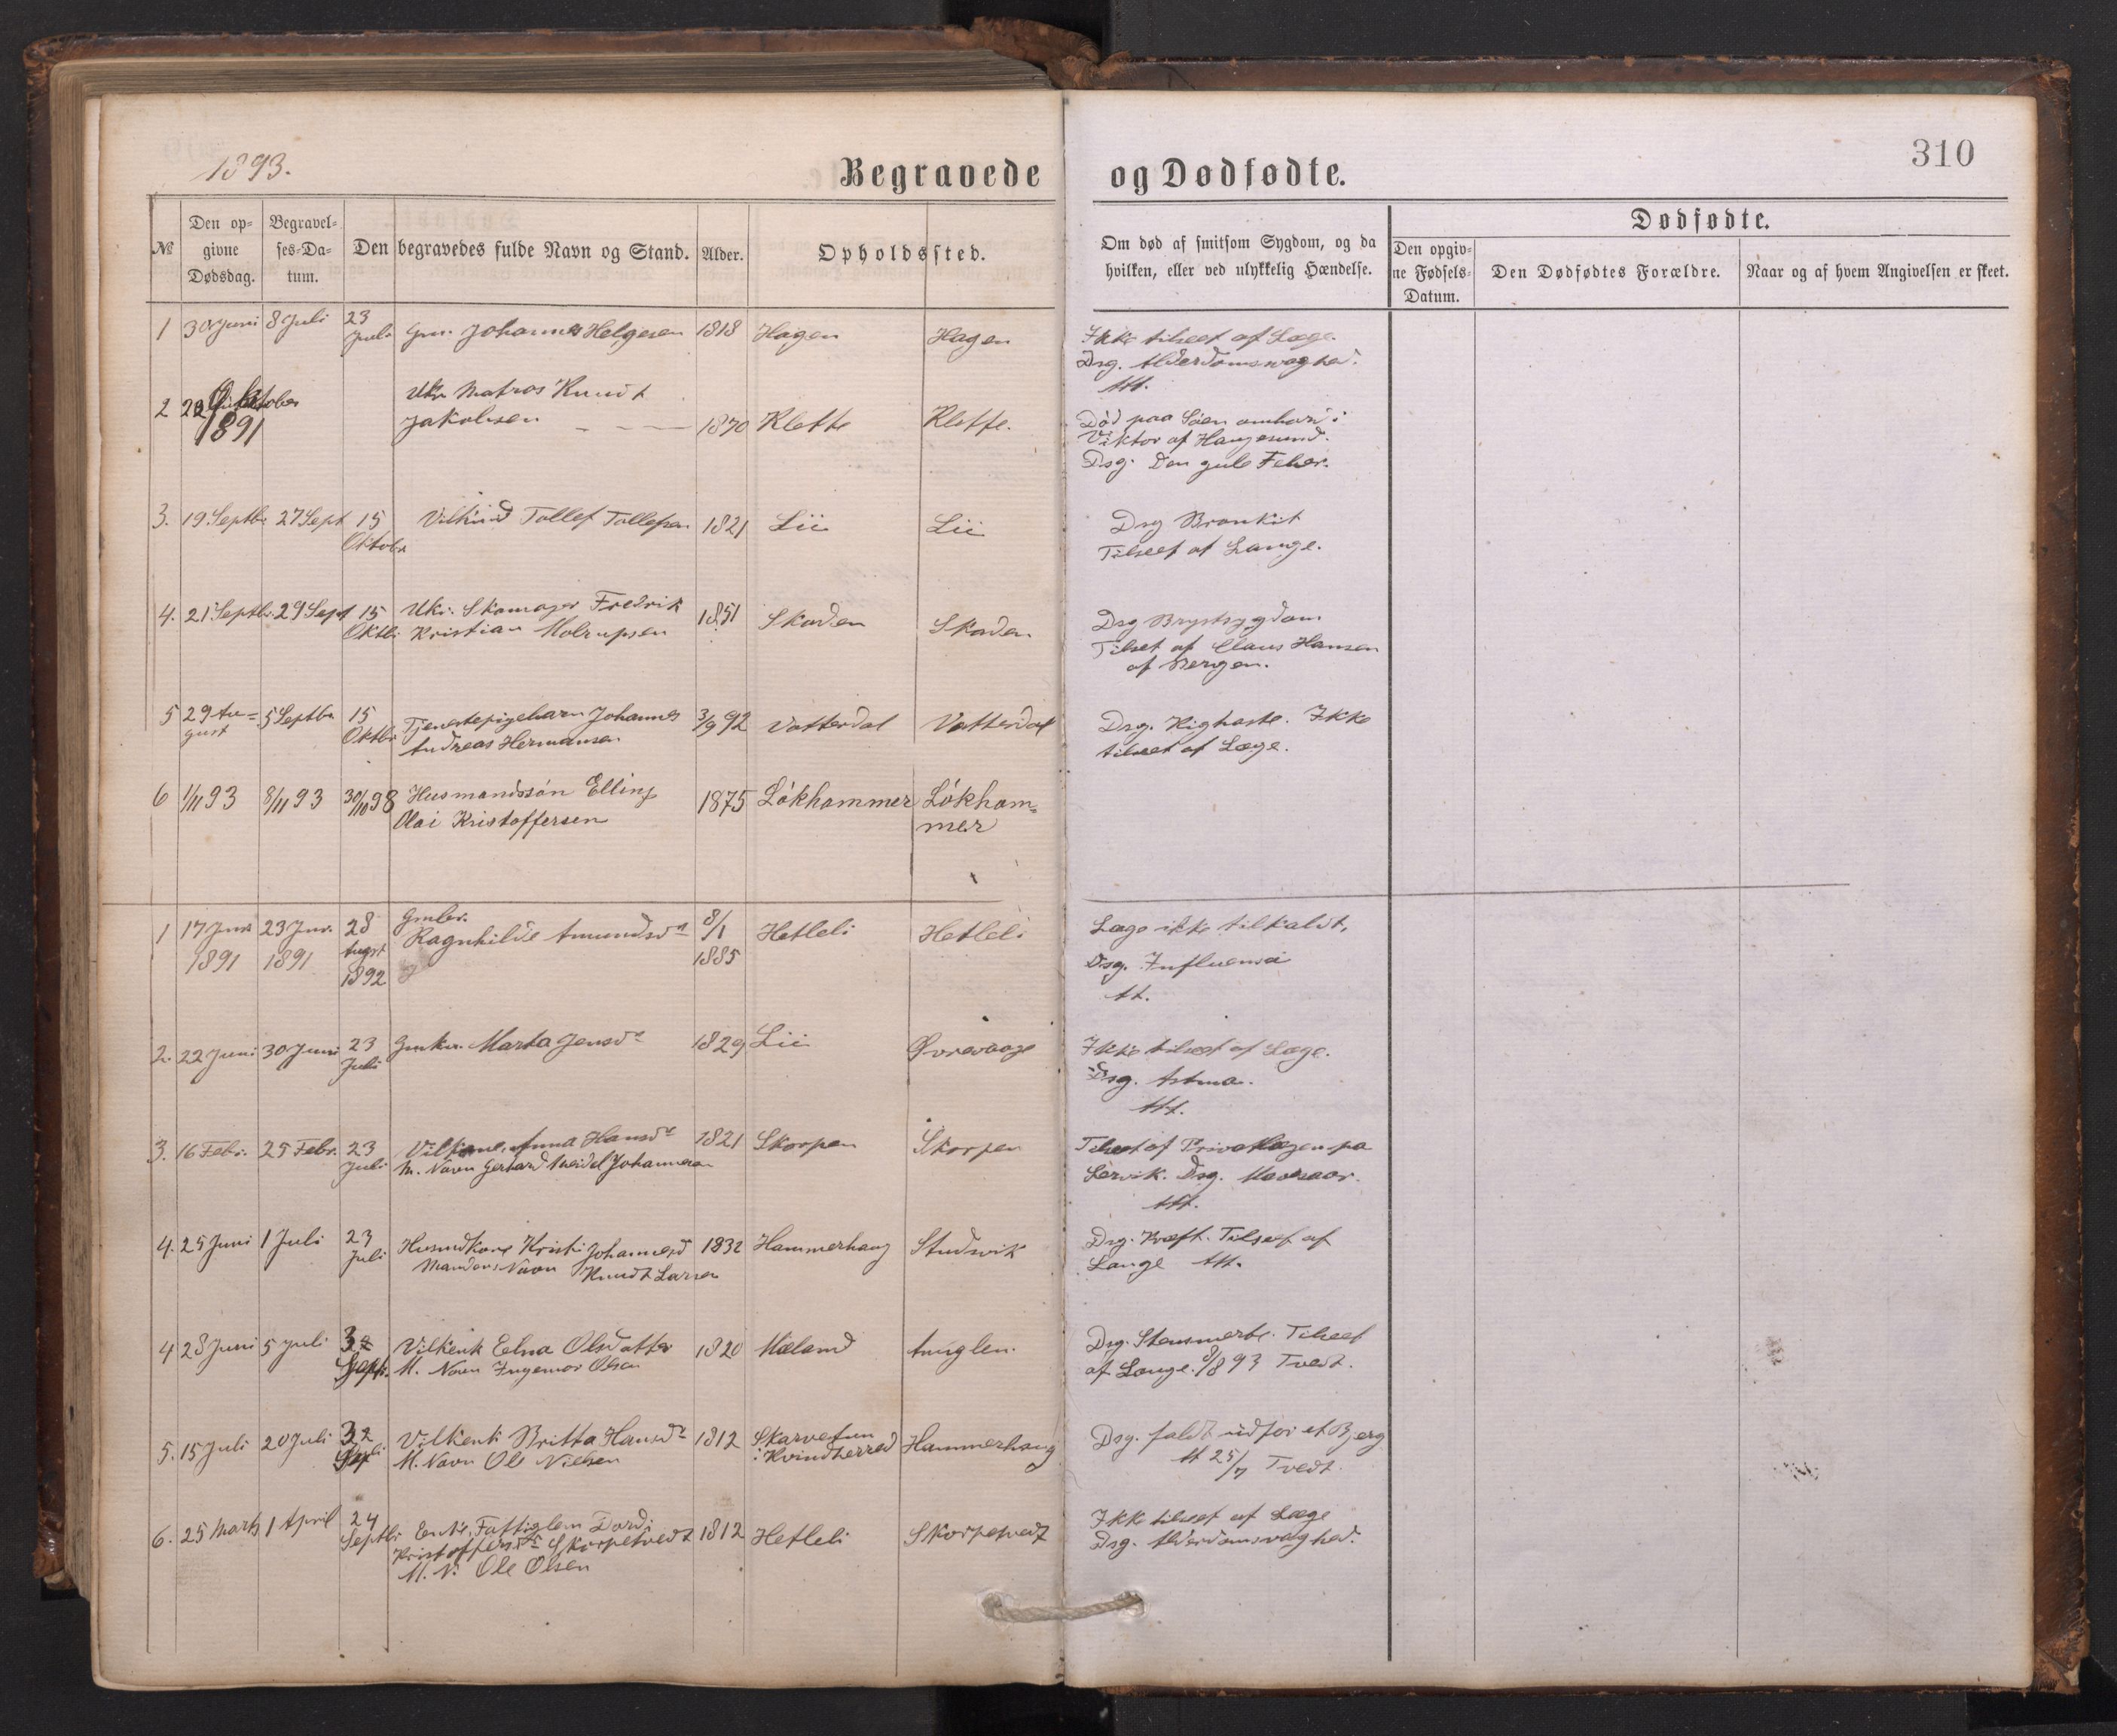 1893.
Begravede og Dødfødte.
310
№
Den opgivne Dødsdag.
Begravelses-Datum.
Den begravedes fulde Navn og Stand.
Alder.
Opholdssted.
Om død af smitsom Sygdom, og da hvilken, eller ved ulykkelig Hændelse.
Dødfødte.
Den opgivne Fødsels-Datum.
Den Dødfødtes Forældre.
Naar og af hvem Angivelsen er skeet.
1 30 Juni 8 Juli 23 Juli Gm. Johannes Helgesen 1818 Hagen Hagen
Ikke tilseet af Læge.
Dsg. Alderdomsvaghed.
Att.
2 Oktober 1891 Ukr. Matros Knudt
Jakobsen 1870 Klette Klette.
Død paa Søen ombord i
Viktor af Haugesund.
Dsg. Den gule Feber.
3. 19 Septbr. 27 Sept 15 Oktobr Tollef Tollefsen 1821 Lii Lii
Dsg Bronkit
Tilseet af Lange.
4. 21 Septbr. 29 Sept 15 Oktbr Ukr. Skomager Fredrik
Kristian 1851 Skaden Skaden
Dsg Brystsygdom
Tilset af Claus Hansen
af Bergen.
5 29 August 5 Septbr. 15 Oktbr Tjenestepigebarn Johannes
Andreas Hermansen 3/9 92 Vatterdal Vatterdal
Dsg. Kighoste. Ikke
tilseet af Læge.
6 1/11 93 8/11 93 30/10 98 Husmandssön Elling
Olai Kristoffersen 1875 Lökhammer Lökhammer
1 17 Jnr 1891 23 Jnr. 1891 28 Augst 1892 Gmbr.
Ragnhilde Amundsdr 8/1 1885 Hetleli Hetleli
Læge ikke tilkaldt,
Dsg. Influensa
At.
2. 22 Juni 30 Juni 23 Juli Gmkr. Marta Jensdr 1829 Lii Øvrevaage
Ikke tilseet af Læge.
Dsg. Astma.
Att.
3. 16 Febr. 25 Febr. 23 Juli Anna Hansdr
M. Navn Gerhard Johannesen 1821 Skorpen Skorpen
Tilseet af Privatlægen paa
Lervik. Dsg. Mavesaar.
Att.
4. 25 Juni 1 Juli 23 Juli Husmdkone Kristi Johannesd
Mandens Navn Knudt Larsen 1832 Hammerhaug Studvik
Dsg. Kræft. Tilseet af
Lange Att.
4 28 Juni 5 Juli Septr. Vilkenk Elna Olsdatter
M. Navn Ingemor Olsen 1820 Mæland Anuglen.
Dsg. Stensmerte. Tilseet
af Lange. 8/8 93 Tvedt.
5. 15 Juli 20 Juli Vilkenk Britta Hansdr
M. Navn Ole Nielsen 1812 Skarvetun
i Kvindherred Hammerhaug
Dsg. faldt udfor et Bjerg
At 25/7 Tvedt.
6. 25 Marts 1 April 24 Septbr Enke, Fattiglem Dordi
Kristoffersdr Skorpetvedt
M. N. Ole Olsen 1812 Hetleli Skorpetvedt
Ikke tilseet af Læge
Dsg. Alderdomsvaghed.